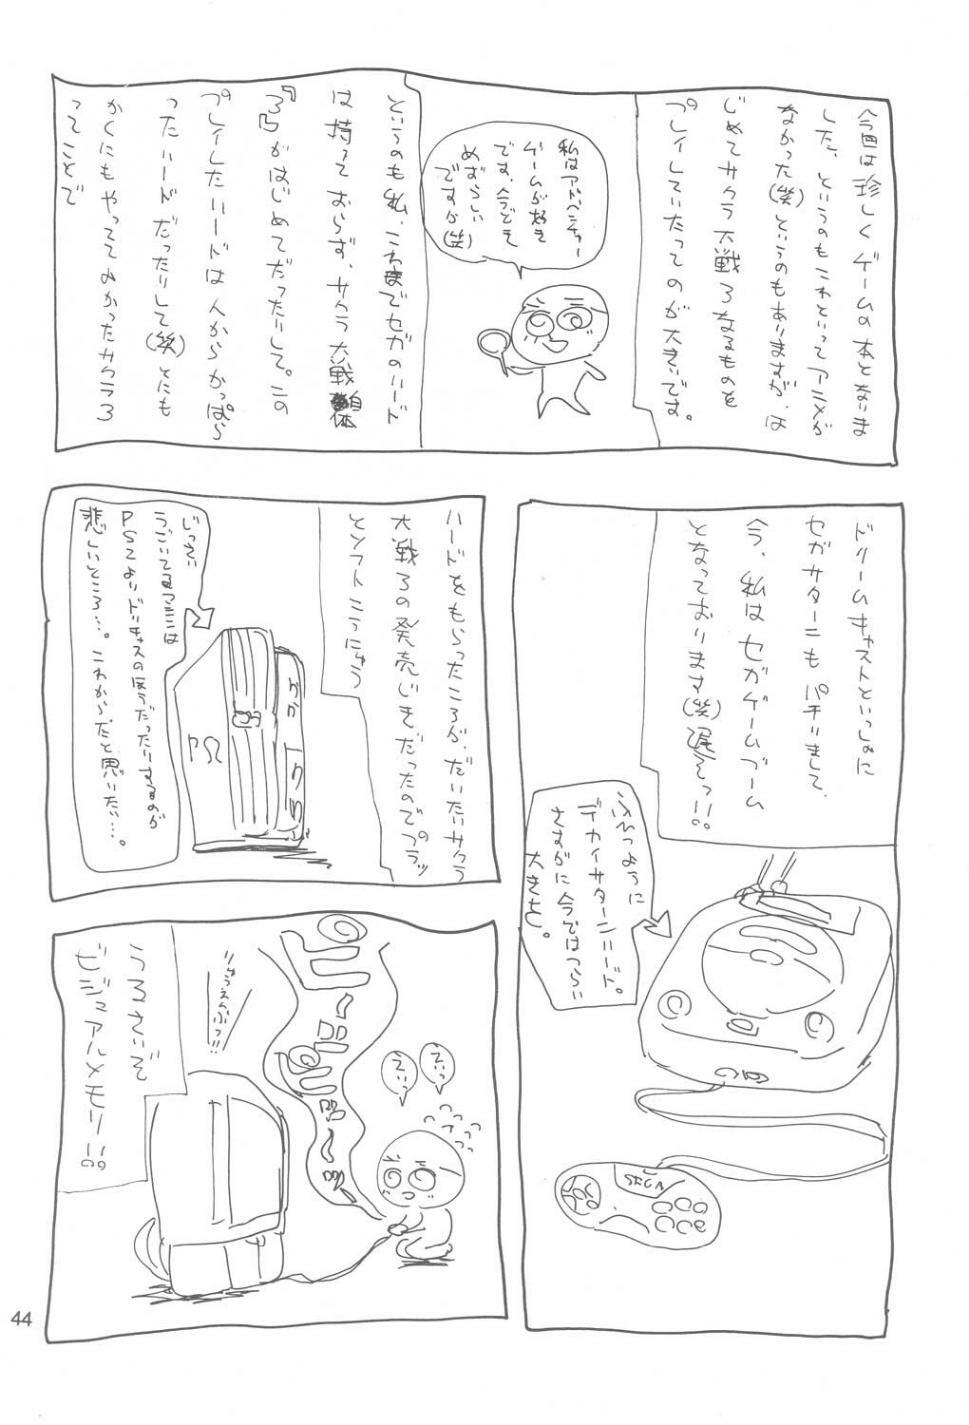 今回は珍しくゲームの本となりま
した。というのもこれといってアニメが
なかった(笑)というのもありますが、は
じめてサクラ大戦3なるものを
プレイしていたってのが大きいです。
私はアドベンチャー
ゲームが好き
です。今どき
めずらしい
ですが(笑)
というのも私、これまでセガのハード
は持っておらず、サクラ大戦自体
『3』がはじめてだったりして。この
プレイしたハードは人からかっぱら
ったハードだったりして(笑)とにも
かくにもやっててよかったサクラ3
ってことで
ドリームキャストといっしょに
セガサターンもパチりまして、
今、私はセガゲームブーム
となっております(笑)遅そっ!!
ふつーように
デカイサターンハード。
さすがに今ではつらい
大きさ。
SEGA
ハードをもらったころが、だいたいサクラ
大戦3の発売じきだったのでプラッ
とソフトこうにゅう
じっさい
うごいてるマシンは
PS2よりドリキャスのほうだったりするのが
悲しいところ…。これからだと思いたい…。
PS2
ピーーーピーーーッ
えいっ
えいっ
うるさいぞ
ビジュアルメモリ!!
44